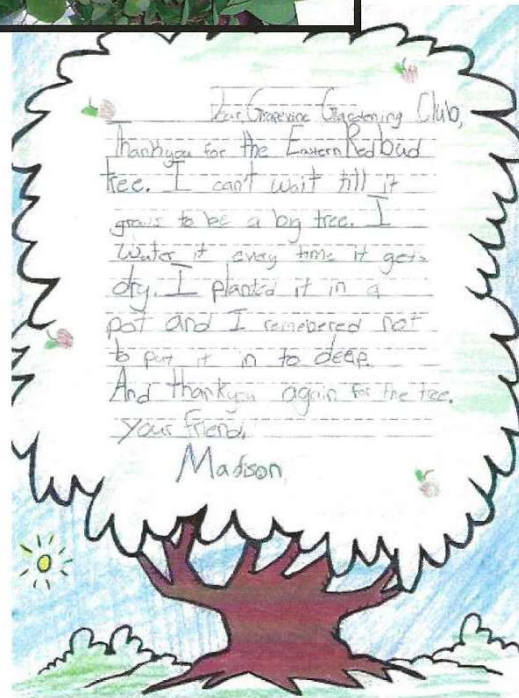 Dear, Grapevine Gardening Club,
Thankyou for the Eastern Redbud
tree. I can't wait till it
grows to be a big tree. I
water it every time it gets
dry. I planted it in a
pot and I remebered not
to put it in to deep.
And thankyou again for the tree.
your friend,
Madison